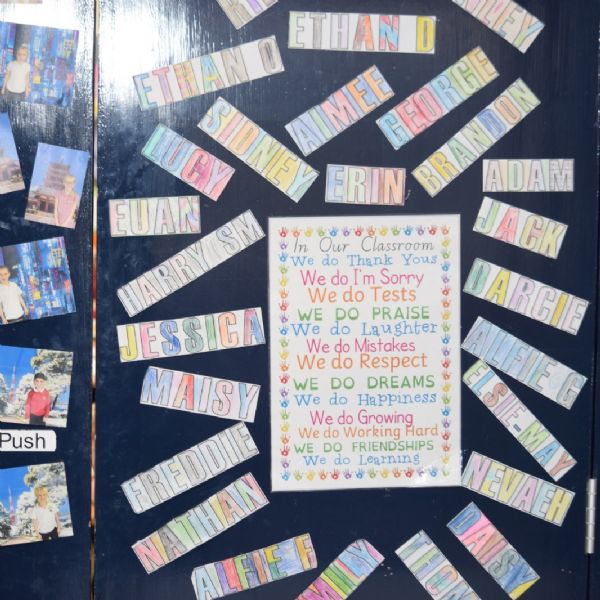 ETHAN D
ETHAN O
AIMEE
GEORGE
SIDNEY
BRANDON
LUCY
ERIN
ADAM
EUAN
JACK
HARRY SM
DARCIE
JESSICA
ALFIE G
MAISY
ELSIE-MAY
FREDDIE
NEVAEH
NATHAN
ALFIE F
DAISY
In Our Classroom
We do Thank Yous
We do I'm Sorry
We do Tests
WE DO PRAISE
We do Laughter
We do Mistakes
We do Respect
WE DO DREAMS
We do Happiness
We do Growing
We do Working Hard
WE DO FRIENDSHIPS
We do Learning
Push